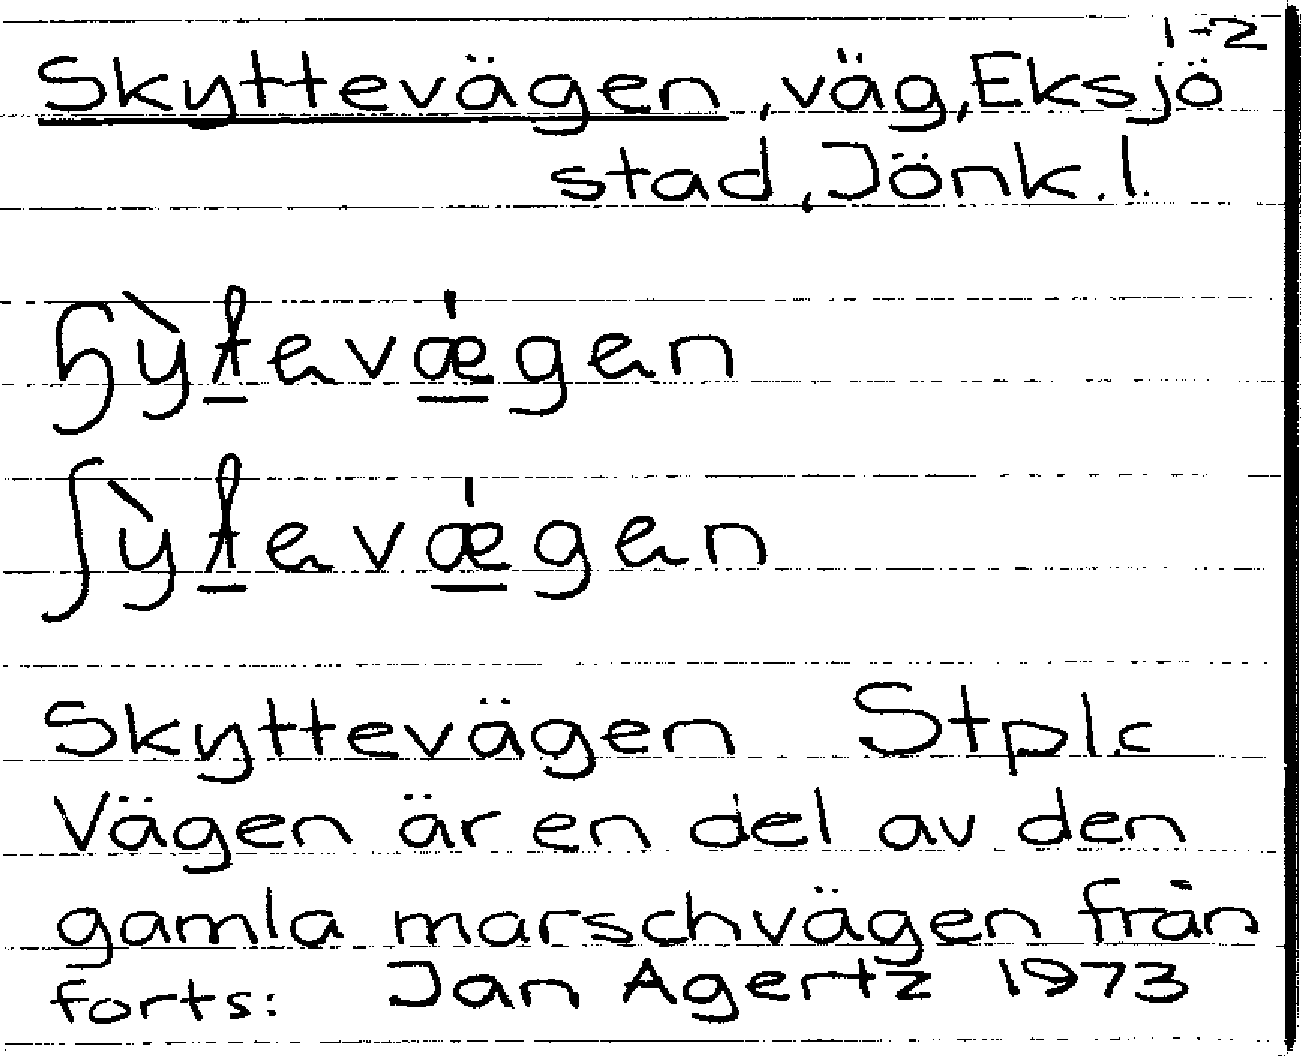 1-2
Skyttevägen, väg, Eksjö
stad, Jönk. l.
ɧỳt̲evǽ̲gen
ʃỳt̲evǽ̲gen
Skyttevägen Stplc
Vägen är en del av den
gamla marschvägen från
forts: Jan Agertz 1973